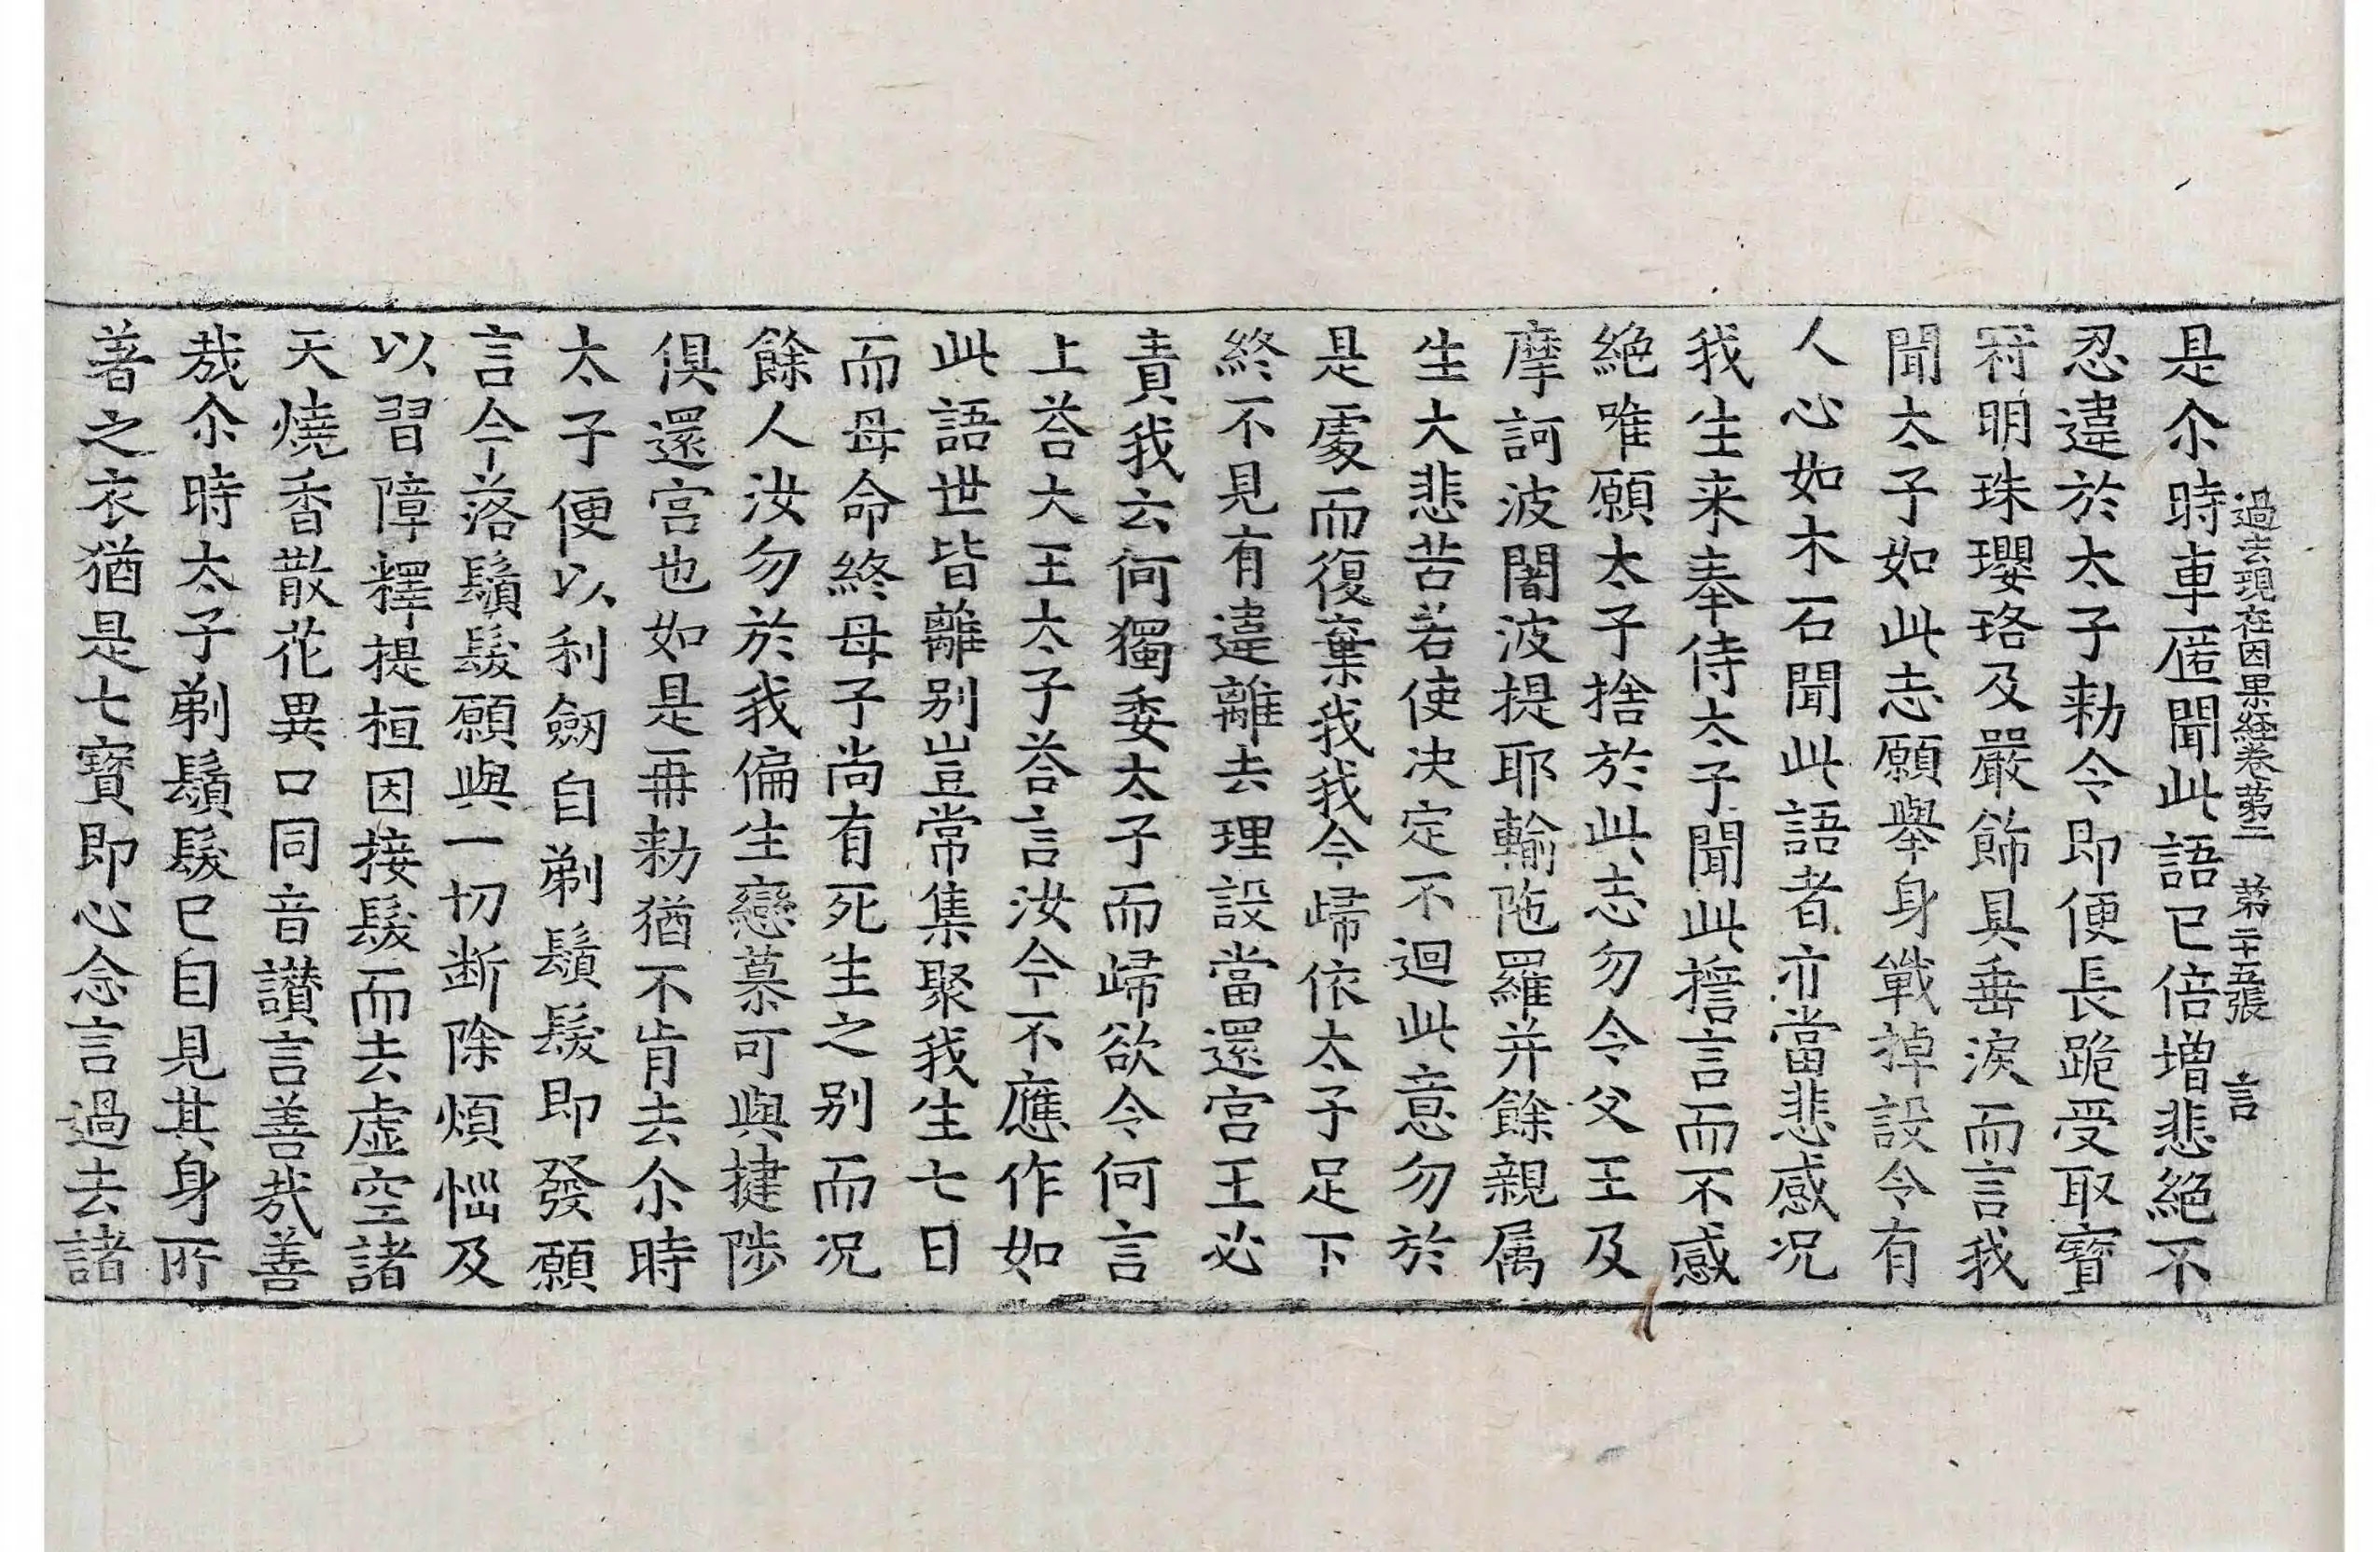 過去現在因果経卷第二　第二十五張　言
是尒時車匿聞此語已倍增悲絶不
忍違於太子勑令即便長跪受取寳
冠明珠瓔珞及嚴飾具垂淚而言我
聞太子如此志願舉身戰掉設令有
人心如木石聞此語者亦當悲感况
我生来奉侍太子聞此擔言而不感
絶唯願太子捨於此志勿令父王及
摩訶波闍波提耶輸陁羅并餘親属
生大悲苦若使决定不迴此意勿於
是處而復棄我我今歸依太子足下
終不見有違離去理設當還宫王必
責我云何獨委太子而歸欲令何言
上荅大王太子荅言汝今不應作如
此語世皆離别豈常集聚我生七日
而母命終母子尚有死生之别而况
餘人汝勿於我偏生戀慕可與揵陟
俱還宫也如是再勑猶不肯去尒時
太子便以利劒自剃鬚髮即發願
言今落鬚髮願與一切断除煩惱及
以習障釋提桓因接髮而去虚空諸
天燒香散花異口同音讃言善哉善
哉尒時太子剃鬚髮已自見其身所
著之衣猶是七寳即心念言過去諸